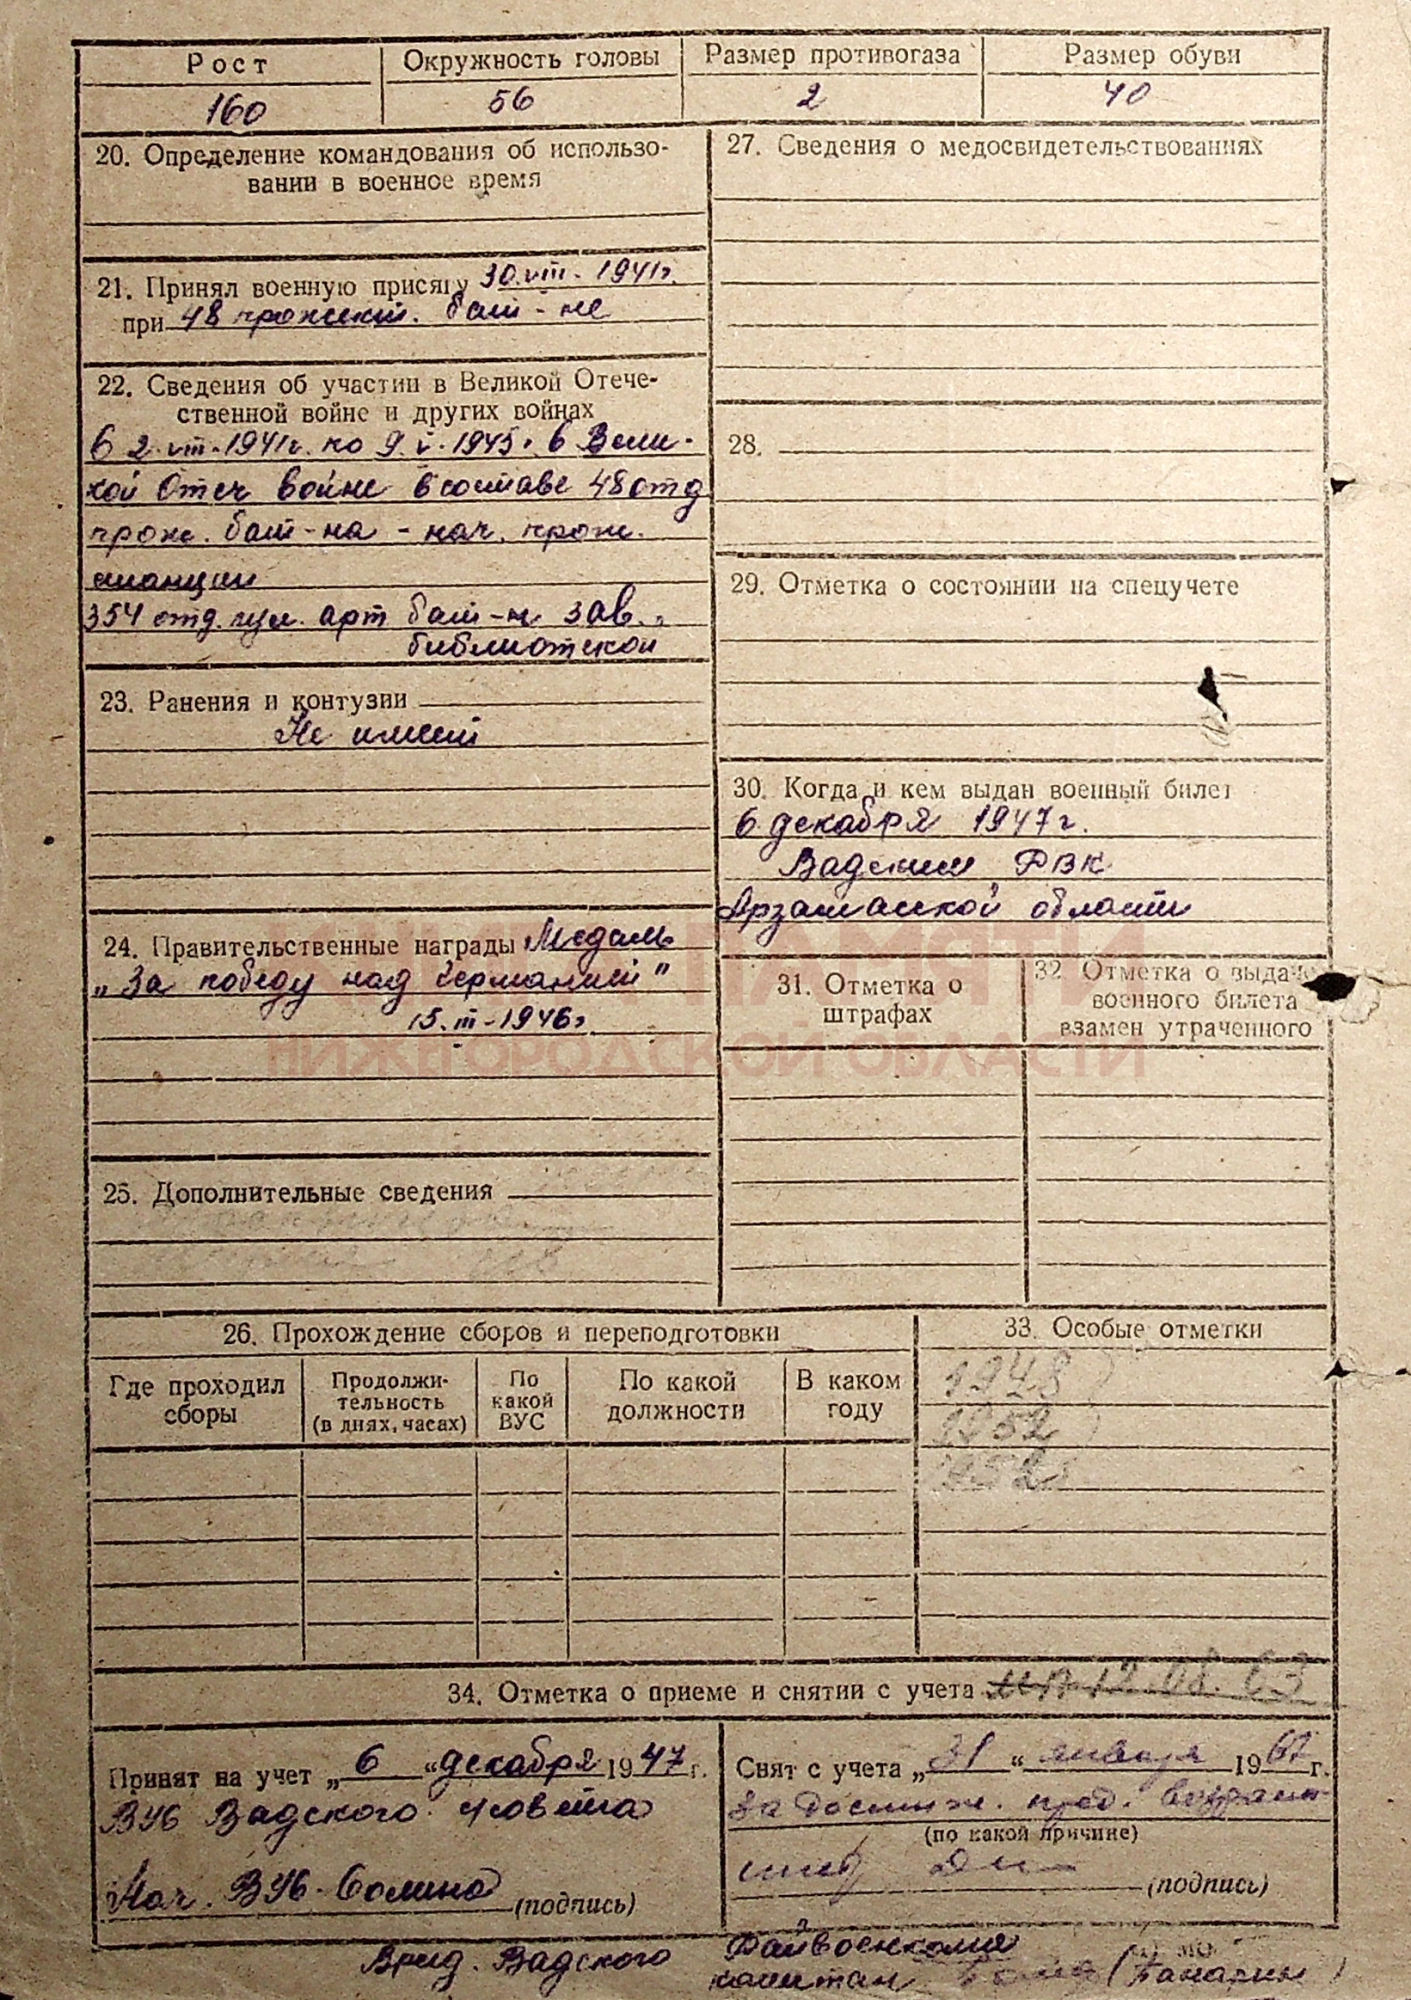 Рост Окружность головы Размер противогаза Размер обуви
160 56 2 40
20. Определение командования об использо-
вании в военное время
21. Принял военную присягу 30.VIII-1941г.
при 48 прожект. бат-не
22. Сведения об участии в Великой Отече-
ственной войне и других войнах
С 2.VIII-1941г. по 9.V-1945г. в Вели-
кой Отеч войне в составе 48 отд
прож. бат-на - нач. прож.
станции
354 отд. пул. арт бат-н зав.
библиотекой
23. Ранения и контузии
Не имеет
24. Правительственные награды Медаль
„За победу над Германией"
15.III-1946г.
25. Дополнительные сведения
27. Сведения о медосвидетельствованиях
28.
29. Отметка о состоянии на спецучете
30. Когда и кем выдан военный билет
6 декабря 1947г.
Вадским РВК
Арзамасской области
31. Отметка о
штрафах
32. Отметка о выдаче
военного билета
взамен утраченного
КНИГА ПАМЯТИ
НИЖЕГОРОДСКОЙ ОБЛАСТИ
26. Прохождение сборов и переподготовки
Где проходил
сборы
Продолжи-
тельность
(в днях, часах)
По
какой
ВУС
По какой
должности
В каком
году
33. Особые отметки
1948
1952
34. Отметка о приеме и снятии с учета 12.08.63
Принят на учет „6" декабря 1947 г.
ВУС Вадского с/совета
Нач. ВУС Сомина
(подпись)
Снят с учета „31" января 1967 г.
за достиж. пред. возраст
(по какой причине)
(подпись)
Врид. Вадского Райвоенкома
капитан (Панарин)